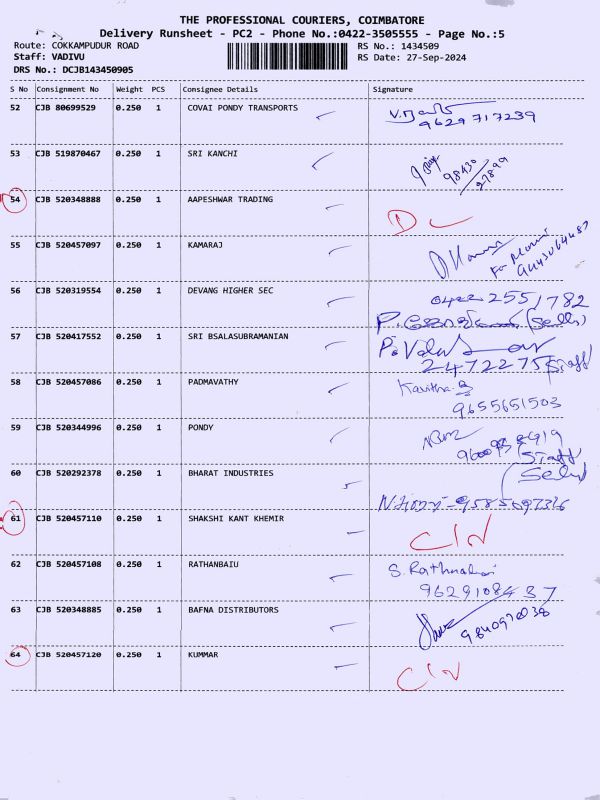 THE PROFESSIONAL COURIERS, COIMBATORE
Delivery Runsheet - PC2 - Phone No.:0422-3505555 - Page No.:5
Route: COKKAMPUDUR ROAD
RS No.: 1434509
Staff: VADIVU
RS Date: 27-Sep-2024
DRS No.: DCJB143450905
S No Consignment No Weight PCS Consignee Details Signature
52 CJB 80699529 0.250 1 COVAI PONDY TRANSPORTS
9629717239
53 CJB 519870467 0.250 1 SRI KANCHI
98430
27899
54 CJB 520348888 0.250 1 AAPESHWAR TRADING
D
55 CJB 520457097 0.250 1 KAMARAJ
56 CJB 520319554 0.250 1 DEVANG HIGHER SEC
0422 2551782
57 CJB 520417552 0.250 1 SRI BSALASUBRAMANIAN
2472275 Staff
58 CJB 520457086 0.250 1 PADMAVATHY
Kavitha
9655651503
59 CJB 520344996 0.250 1 PONDY
(Staff
60 CJB 520292378 0.250 1 BHARAT INDUSTRIES
61 CJB 520457110 0.250 1 SHAKSHI KANT KHEMIR
C/N
62 CJB 520457108 0.250 1 RATHANBAIU
9629108437
63 CJB 520348885 0.250 1 BAFNA DISTRIBUTORS
64 CJB 520457120 0.250 1 KUMMAR
C/N